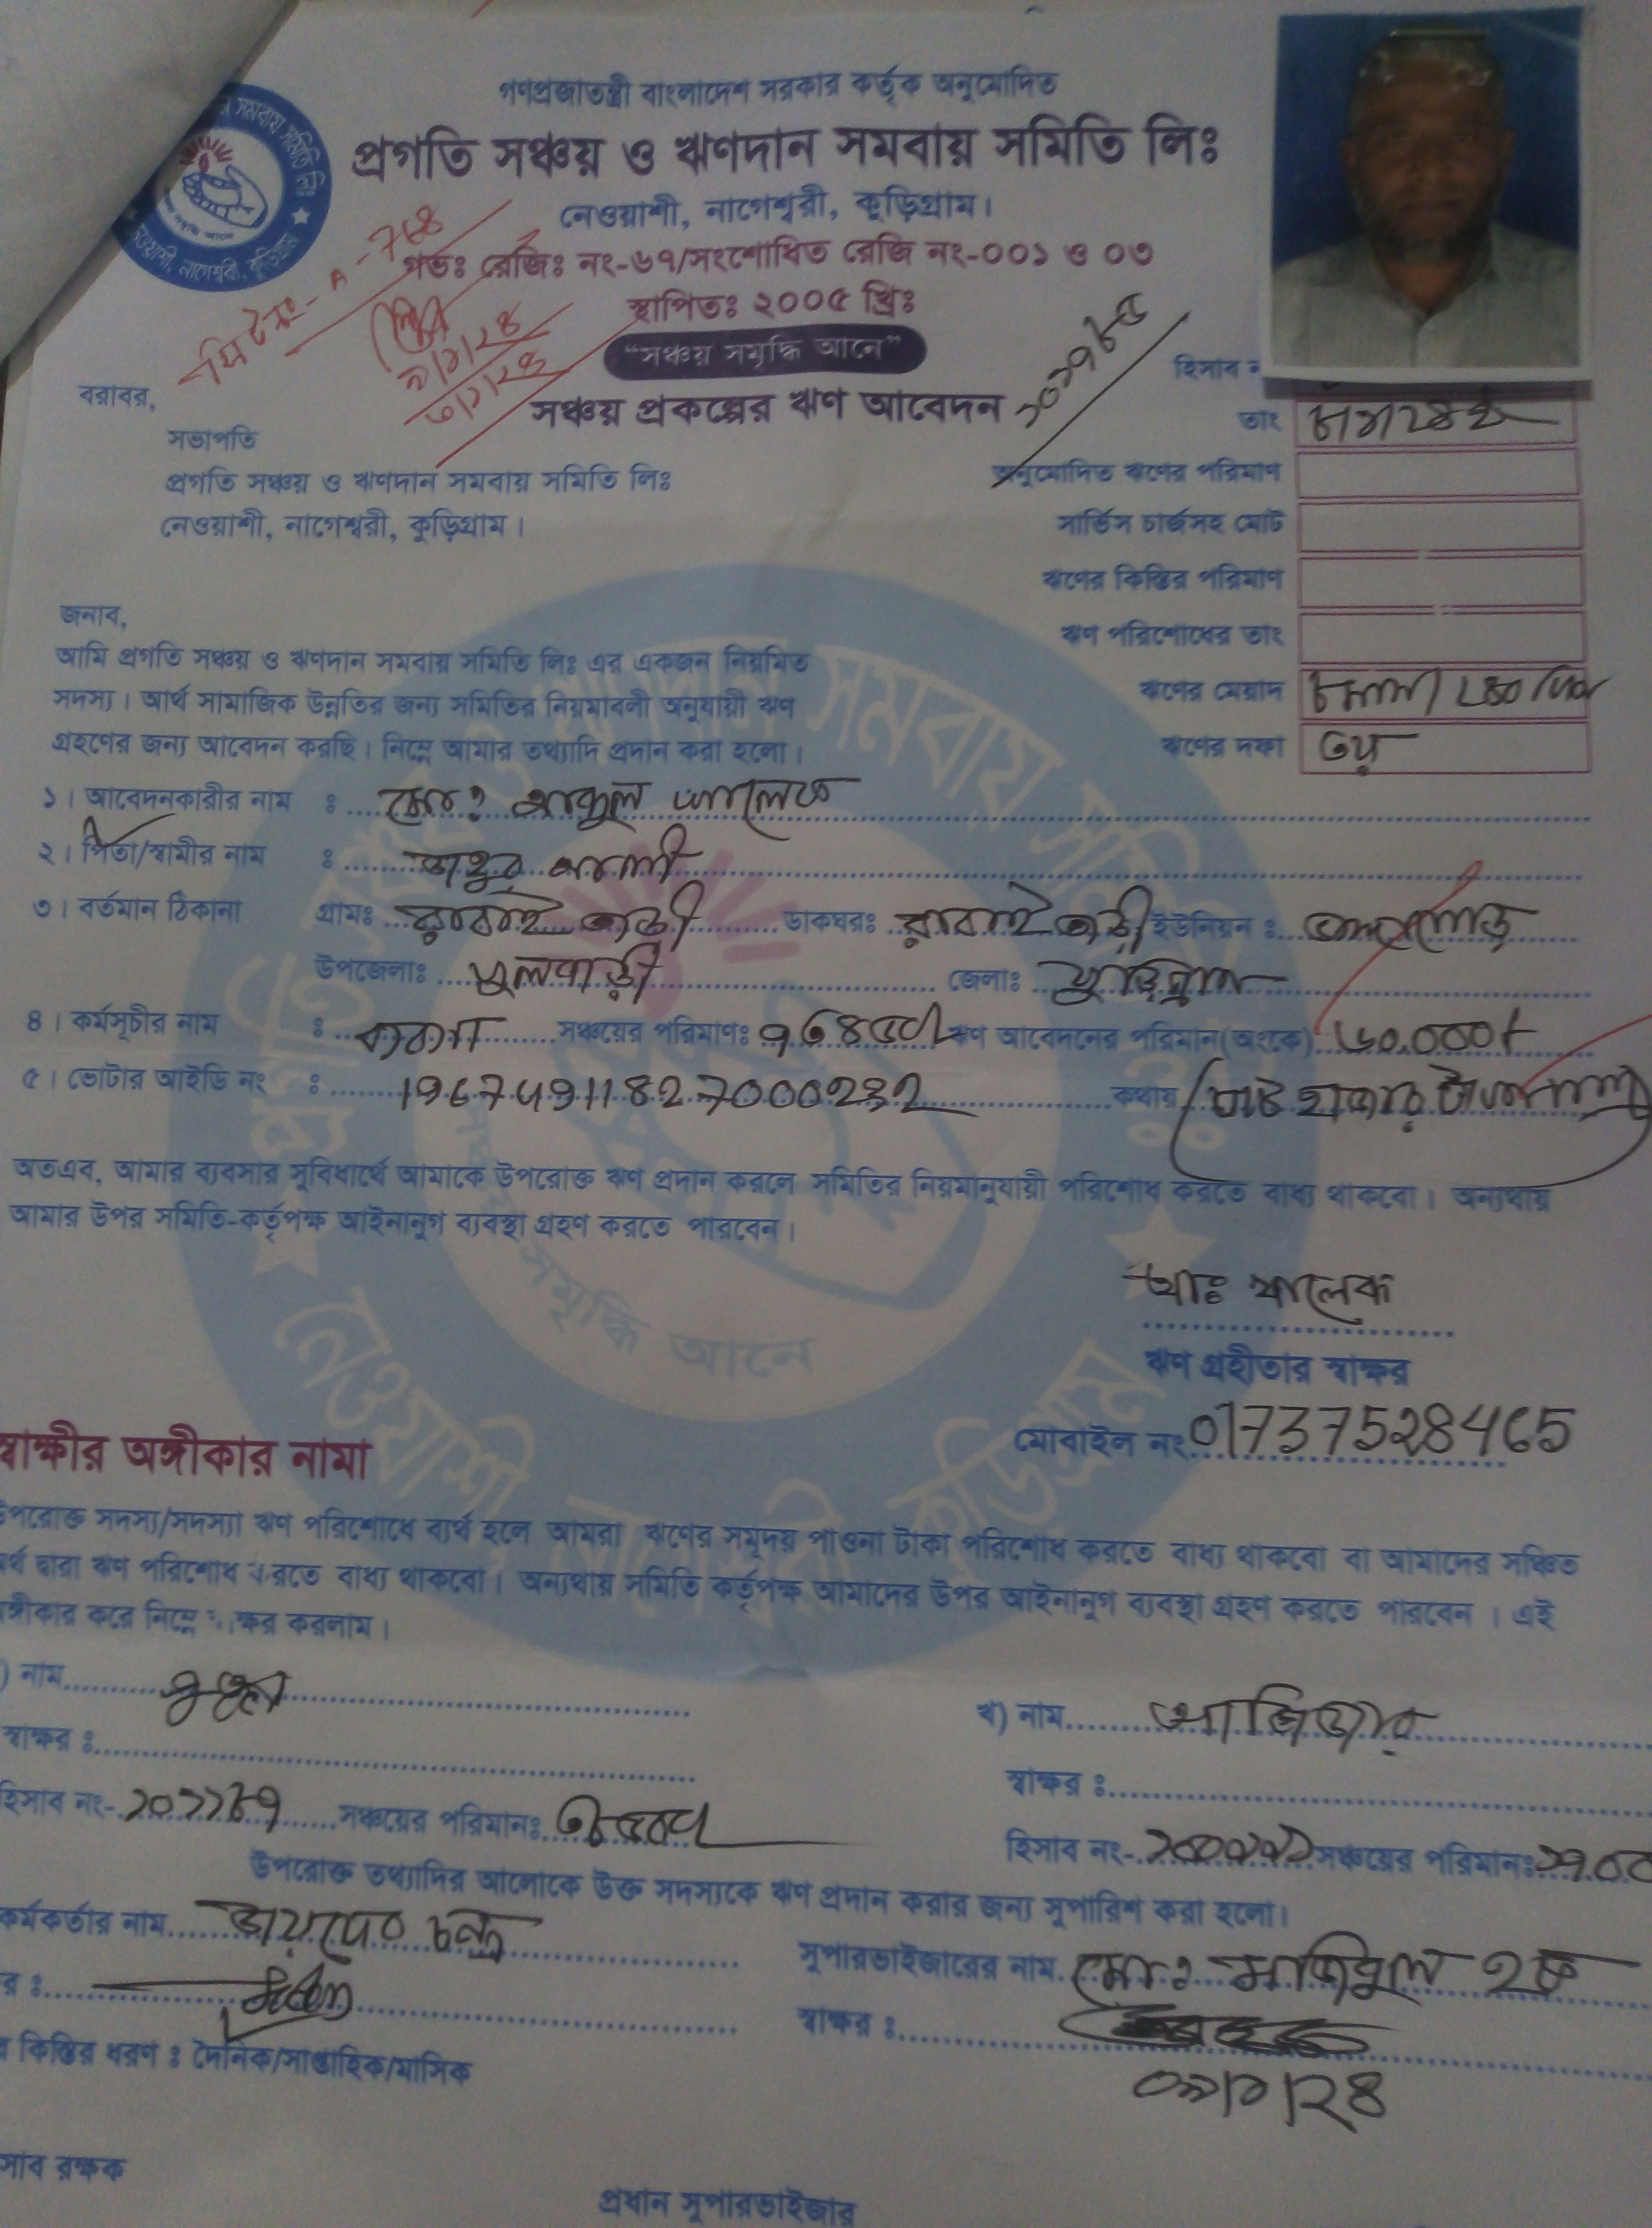 গণপ্রজাতন্ত্রী বাংলাদেশ সরকার কর্তৃক অনুমোদিত
প্রগতি সঞ্চয় ও ঋণদান সমবায় সমিতি লিঃ
নেওয়াশী, নাগেশ্বরী, কুড়িগ্রাম।
গভঃ রেজিঃ নং-৬৭/সংশোধিত রেজি নং-০০১ ও ০৩
স্থাপিতঃ ২০০৫ খ্রিঃ
"সঞ্চয় সমৃদ্ধি আনে"
সঞ্চয় প্রকল্পের ঋণ আবেদন
হিসাব
তাং
বরাবর,
সভাপতি
প্রগতি সঞ্চয় ও ঋণদান সমবায় সমিতি লিঃ
নেওয়াশী, নাগেশ্বরী, কুড়িগ্রাম।
অনুমোদিত ঋণের পরিমাণ
সার্ভিস চার্জসহ মোট
ঋণের কিস্তির পরিমাণ
ঋণ পরিশোধের তাং
ঋণের মেয়াদ
ঋণের দফা ৩য়
জনাব,
আমি প্রগতি সঞ্চয় ও ঋণদান সমবায় সমিতি লিঃ এর একজন নিয়মিত
সদস্য। আর্থ সামাজিক উন্নতির জন্য সমিতির নিয়মাবলী অনুযায়ী ঋণ
গ্রহণের জন্য আবেদন করছি। নিম্নে আমার তথ্যাদি প্রদান করা হলো।
১। আবেদনকারীর নাম : মোঃ আব্দুল খালেক
২। পিতা/স্বামীর নাম : আলী
৩। বর্তমান ঠিকানা গ্রামঃ রাবাইতারী ডাকঘরঃ রাবাইতারী ইউনিয়ন :
উপজেলাঃ ফুলবাড়ী জেলাঃ কুড়িগ্রাম
৪। কর্মসূচীর নাম : ব্যবসা সঞ্চয়ের পরিমাণঃ ঋণ আবেদনের পরিমান(অংকে) ৬০,০০০/
৫। ভোটার আইডি নং : 19674911827000232 কথায় (ষাট হাজার টাকা মাত্র)
অতএব, আমার ব্যবসার সুবিধার্থে আমাকে উপরোক্ত ঋণ প্রদান করলে সমিতির নিয়মানুযায়ী পরিশোধ করতে বাধ্য থাকবো। অন্যথায়
আমার উপর সমিতি-কর্তৃপক্ষ আইনানুগ ব্যবস্থা গ্রহণ করতে পারবেন।
আঃ খালেক
ঋণ গ্রহীতার স্বাক্ষর
মোবাইল নং 01737528465
স্বাক্ষীর অঙ্গীকার নামা
উপরোক্ত সদস্য/সদস্যা ঋণ পরিশোধে ব্যর্থ হলে আমরা ঋণের সমূদয় পাওনা টাকা পরিশোধ করতে বাধ্য থাকবো বা আমাদের সঞ্চিত
র্থ দ্বারা ঋণ পরিশোধ করতে বাধ্য থাকবো। অন্যথায় সমিতি কর্তৃপক্ষ আমাদের উপর আইনানুগ ব্যবস্থা গ্রহণ করতে পারবেন। এই
ঙ্গীকার করে নিম্নে ক্ষর করলাম।
) নাম
খ) নাম আজিজার
স্বাক্ষর :
স্বাক্ষর :
হিসাব নং- সঞ্চয়ের পরিমানঃ
হিসাব নং- সঞ্চয়ের পরিমানঃ
উপরোক্ত তথ্যাদির আলোকে উক্ত সদস্যকে ঋণ প্রদান করার জন্য সুপারিশ করা হলো।
কর্মকর্তার নাম জয়দেব চন্দ্র
সুপারভাইজারের নাম মোঃ হক
র :
স্বাক্ষর :
র কিস্তির ধরণ : দৈনিক/সাপ্তাহিক/মাসিক
সাব রক্ষক
প্রধান সুপারভাইজার